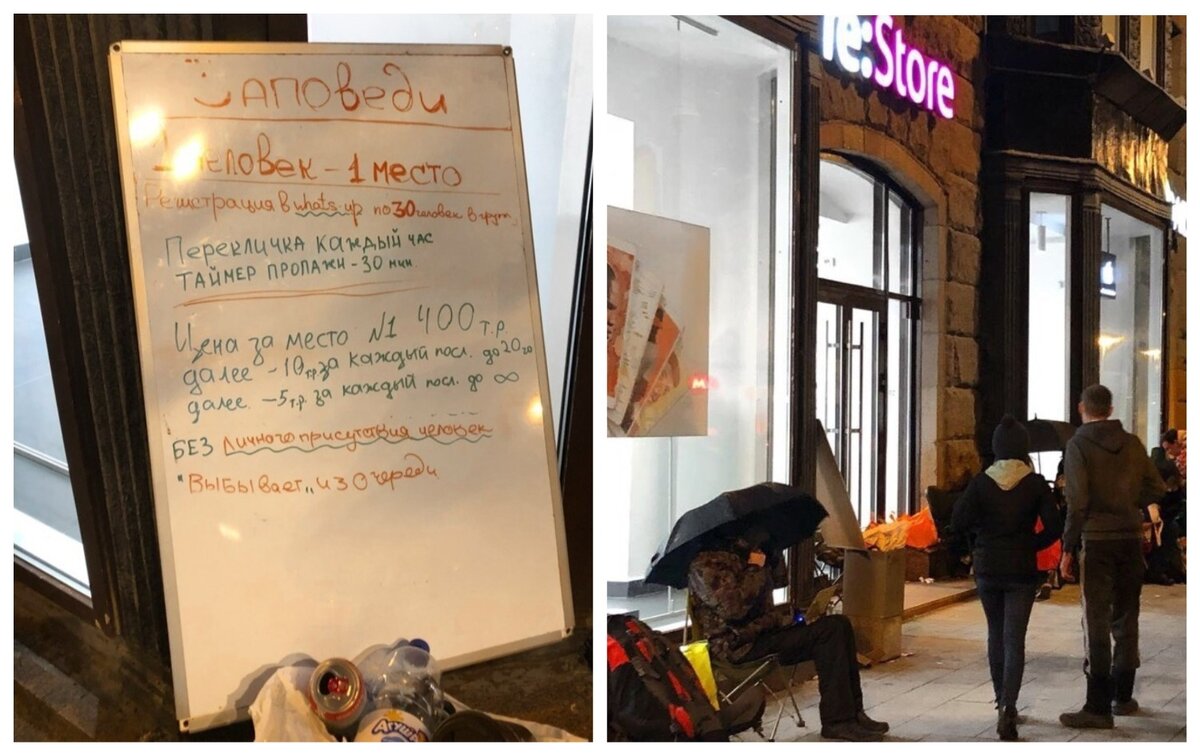 Заповеди
1 человек - 1 место
Регистрация в whats-up по 30 человек в групп
Перекличка каждый час
Таймер пропажи - 30 мин.
Цена за место №1 400 т.р.
далее -10 т.р за каждый посл. до 20го
далее. -5 т.р. за каждый посл. до ∞
БЕЗ личного присутствия человек
"Выбывает" из очереди
Агуша
re:Store
М